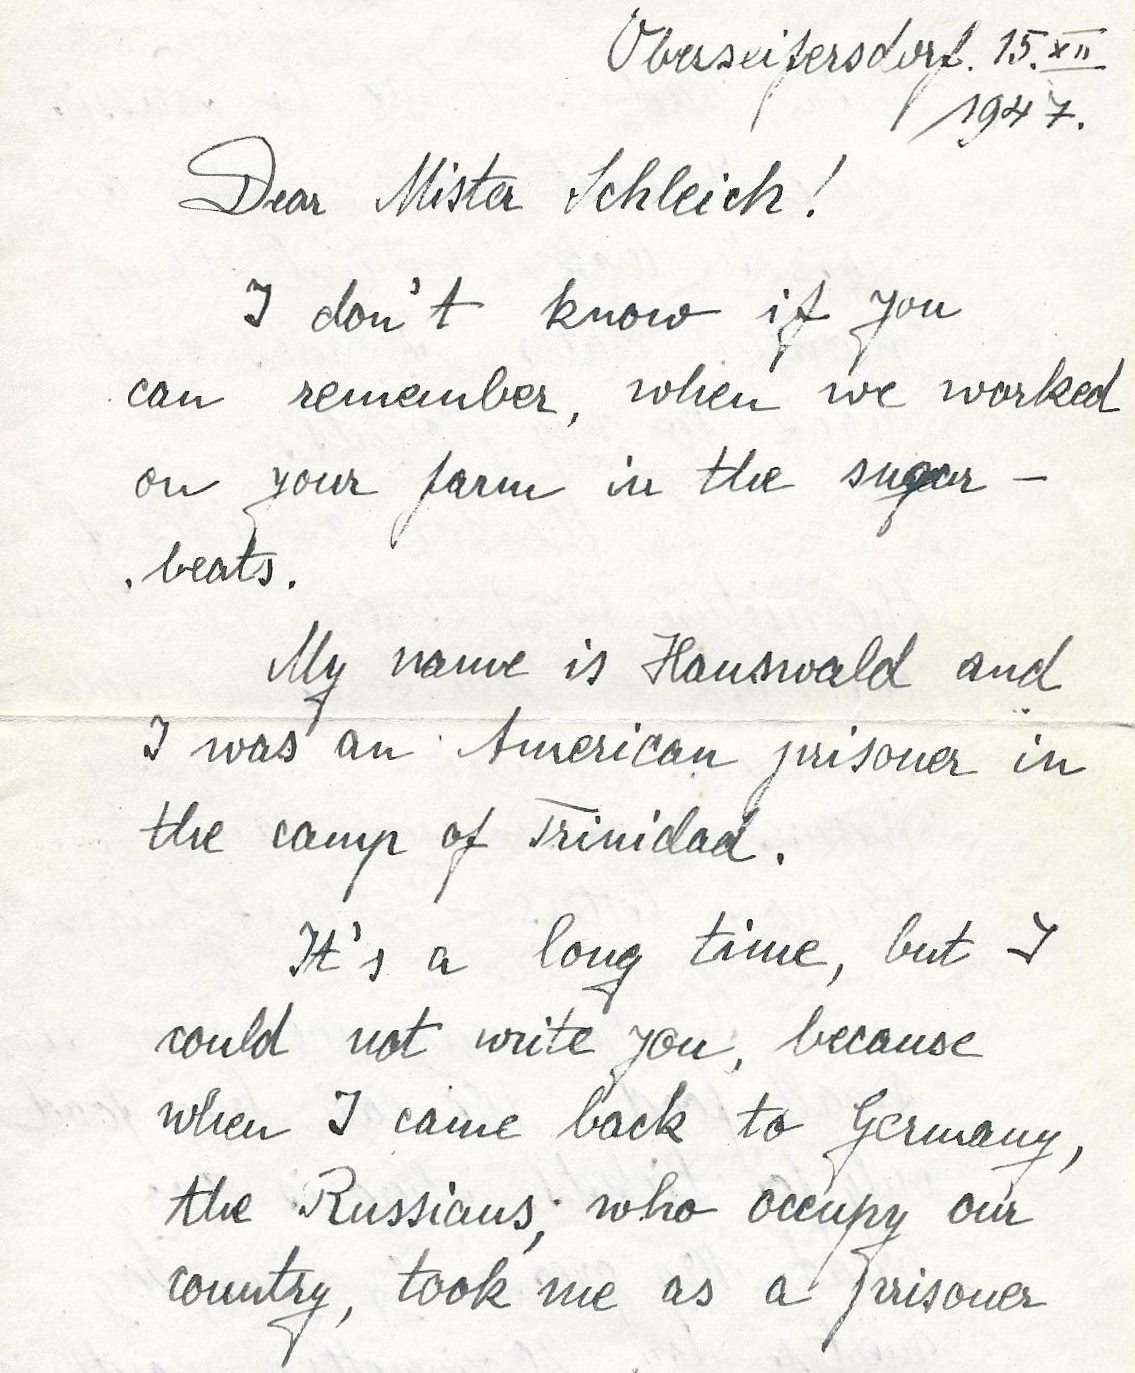 Oberseifersdorf. 15.XII
1947.
Dear Mister Schleich!
I don't know if you
can remember, when we worked
on your farm in the sugar-
beats.
My name is Hauswald and
I was an American prisoner in
the camp of Trinidad.
It's a long time, but I
could not write you, because
when I came back to Germany,
the Russians, who occupy our
country, took me as a prisoner